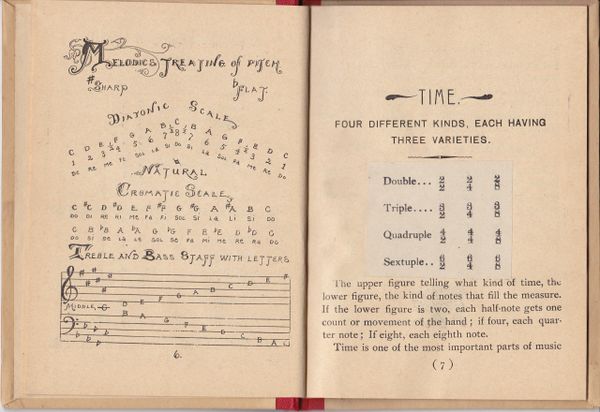 Melodics Treating of Pitch
♯Sharp ♭Flat.
Diatonic Scale
C D E F G A B C B A G F E D C
1 2 3 4 5 6 7 8 7 6 5 4 3 2 1
DO RE ME FA SOL LA SI DO SI LA SOL FA ME RE DO
♮
Natural
Cromatic Scale
C ♯C D ♯D E F ♯F G ♯G A ♯A B C
C B ♭B A ♭A G ♭G F E ♭E D ♭D C
Treble and Bass Staff with Letters
D E F G A B C D E F
Middle C
B A G F E D C B A G
6.
TIME.
FOUR DIFFERENT KINDS, EACH HAVING
THREE VARIETIES.
Double... 2/2 2/4 2/8
Triple.... 3/2 3/4 3/8
Quadruple 4/2 4/4 4/8
Sextuple.. 6/2 6/4 6/8
The upper figure telling what kind of time, the
lower figure, the kind of notes that fill the measure.
If the lower figure is two, each half-note gets one
count or movement of the hand ; if four, each quar-
ter note ; If eight, each eighth note.
Time is one of the most important parts of music
(7)